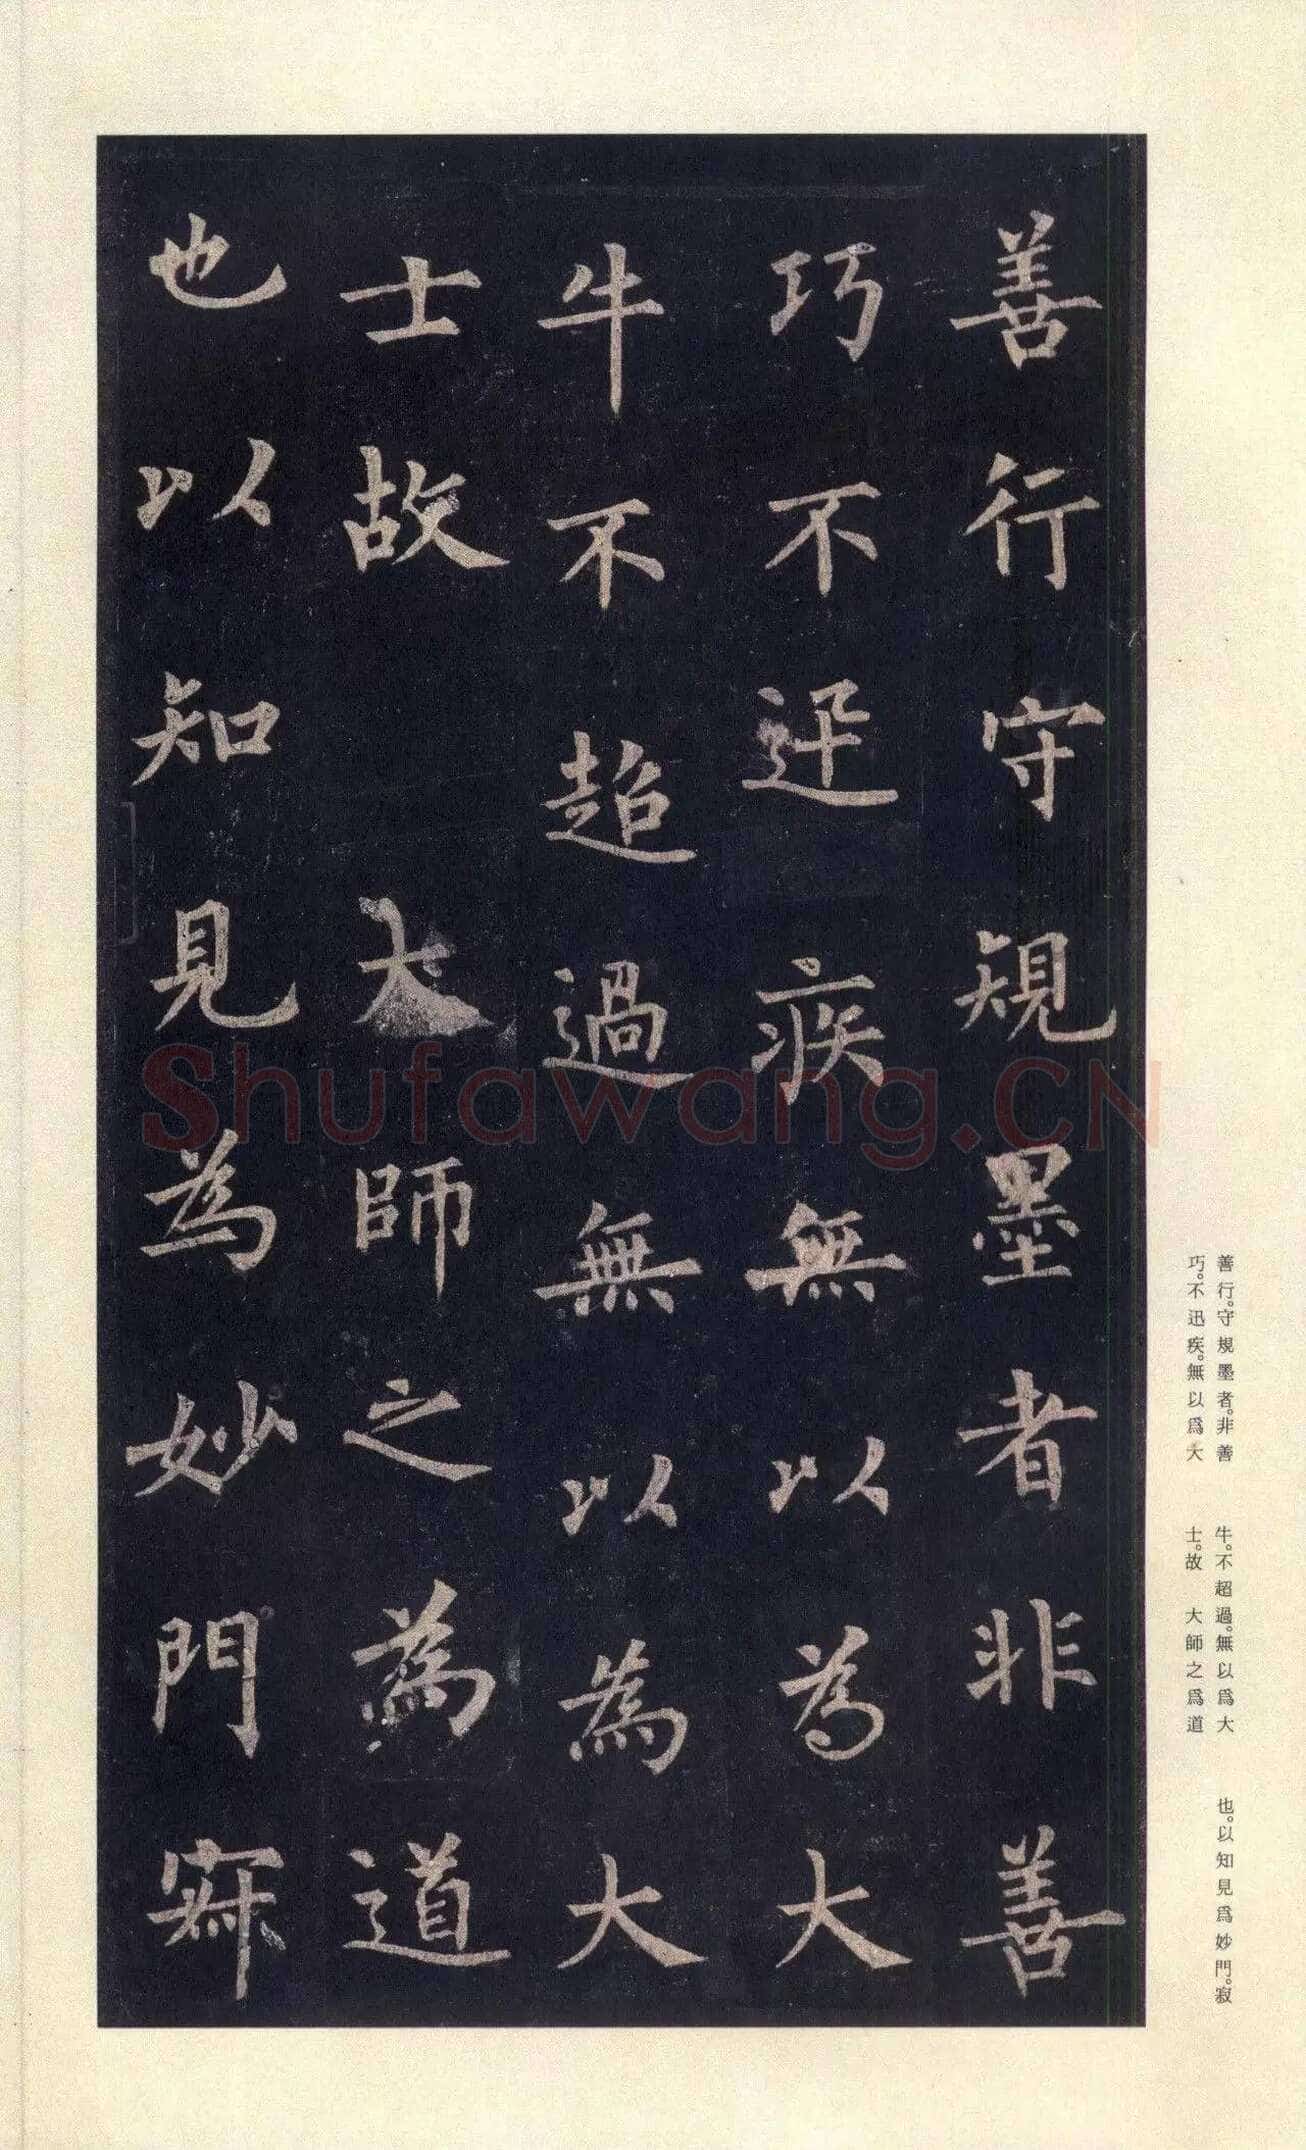 善行守規墨者非善
巧不迅疾無以為大
牛不超過無以為大
士故 大師之為道
也以知見為妙門寂
善行。守規墨者。非善
巧。不迅疾。無以爲大
牛。不超過。無以爲大
士。故 大師之爲道
也。以知見爲妙門。寂
Shufawang.CN